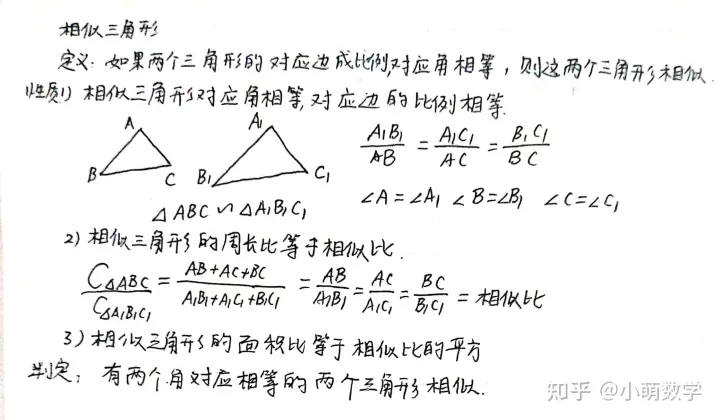 相似三角形
定义:如果两个三角形的对应边成比例,对应角相等,则这两个三角形相似.
性质1)相似三角形对应角相等,对应边的比例相等.
A A₁ A₁B₁/AB = A₁C₁/AC = B₁C₁/BC
B C B₁ C₁ ∠A=∠A₁ ∠B=∠B₁ ∠C=∠C₁
△ABC ∽ △A₁B₁C₁
2)相似三角形的周长比等于相似比.
C△ABC/C△A₁B₁C₁ = AB+AC+BC/A₁B₁+A₁C₁+B₁C₁ = AB/A₁B₁ = AC/A₁C₁ = BC/B₁C₁ = 相似比
3)相似三角形的面积比等于相似比的平方
判定:有两个角对应相等的两个三角形相似.
知乎 @小萌数学